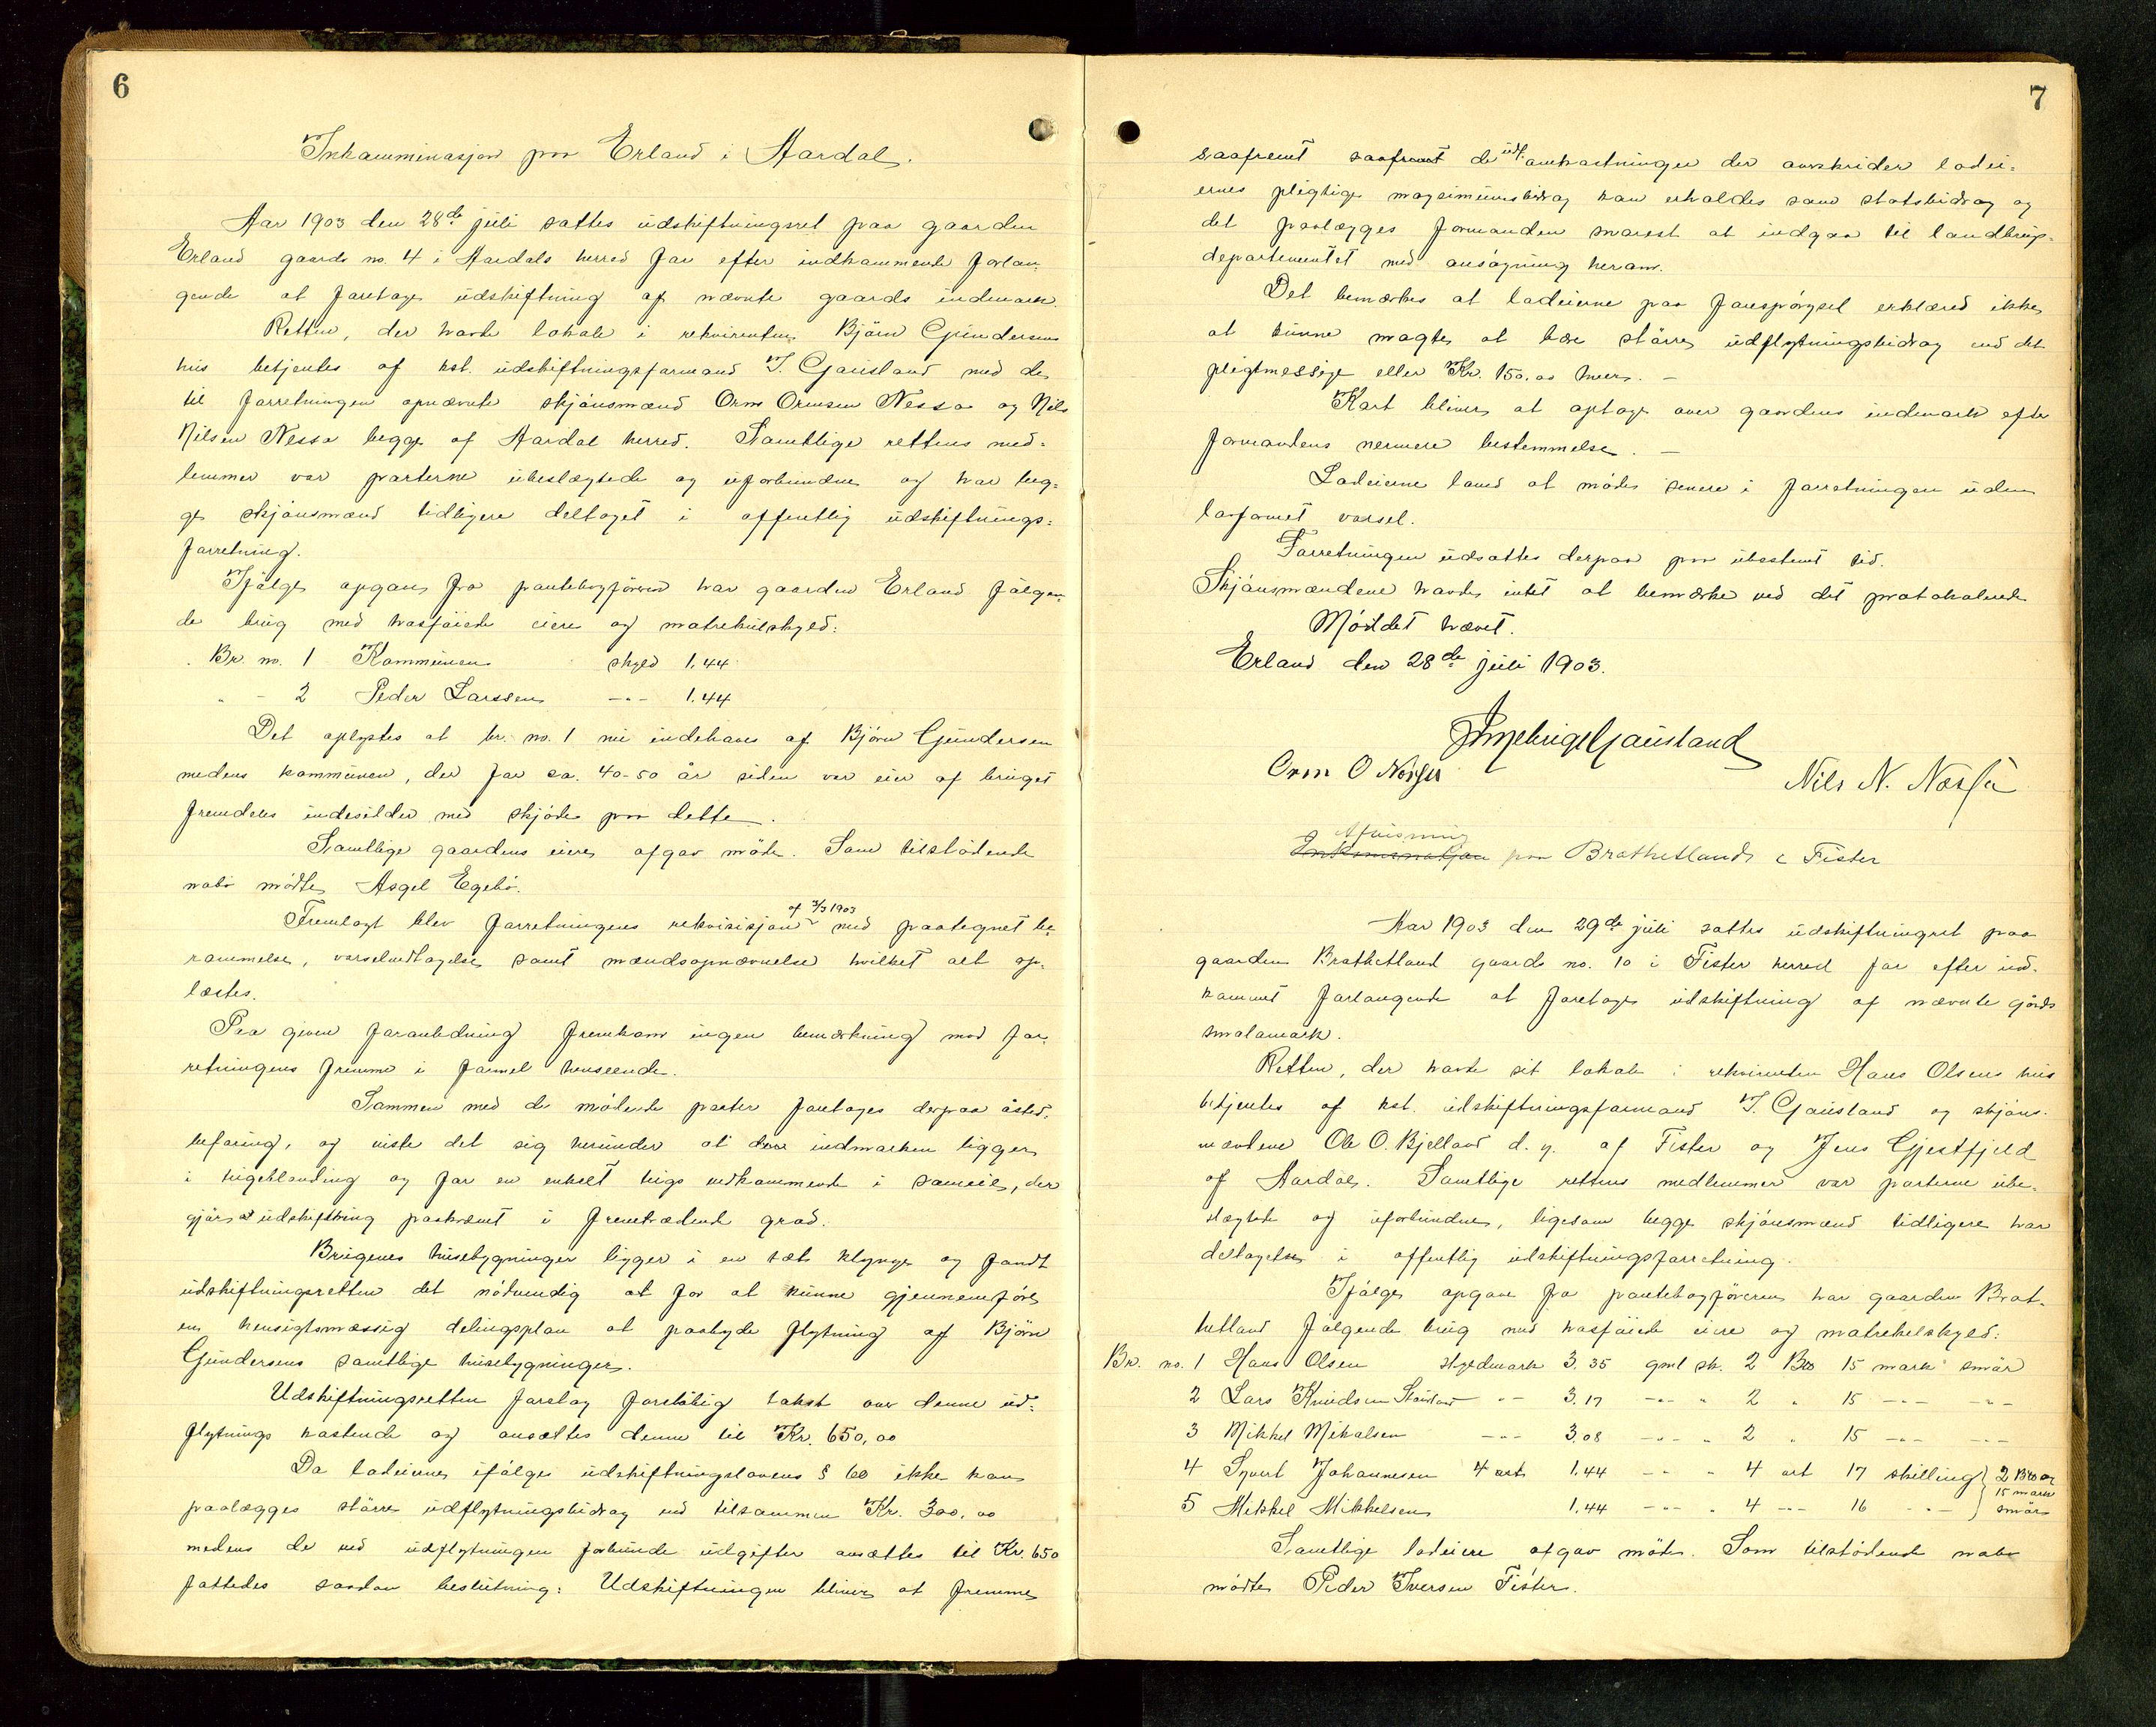 6
Inkamminasjon paa Erland i Aardal.
Aar 1903 den 28de juli sattes udskiftningsret paa gaarden
Erland gaards no. 4 i Aardals herred for efter indkammende forlan-
gende at foretage udskiftning af nævnte gaards indmark.
Retten, der havde lokale i rekvirenten Bjørn Gundersens
hus betjentes af kst. udskiftningsformand T. Gausland med de
til forretningen opnævnte skjønsmænd Orm Ormsen Nessa og Nils
Nilsen Nessa begge af Aardal herred. Samtlige rettens med-
lemmer var parterne ubeslægtede og uforbundne og har beg-
ge skjønsmænd tidligere deltaget i offentlig udskiftnings-
forretning.
Ifølge opgave fra pantebogføreren har gaarden Erland følgen-
de brug med hosføiede eiere og matrikulskyld:
Br. no. 1 Kommunen skyld 1.44
" - 2 Peder Larssen -"- 1.44
Det oplystes at br. no. 1 nu indehaves af Bjørn Gundersen
medens kommunen, der for ca. 40-50 år siden var eier af bruget
fremdeles indesidder med skjøde paa dette.
Samtlige gaardens eiere afgav møde. Som tilstødende
nabo mødte Asgel Egebø.
Fremlagt blev forretningens rekvisisjon af 3/3 1903 med paategnet be-
rammelse, varselvedtagelse samt mændsopnævnelse hvilket alt op-
læstes.
Paa given foranledning fremkom ingen bemærkning mod for-
retningens fremme i formel henseende.
Sammen med de mødende parter foretages derpaa åsted-
befaring, og viste det sig herunder at indmarken ligger
i teigeblanding og for en enkelt teigs vedkammende i sameie, der
gjør at udskiftning paakrævet i fremtrædende grad.
Brugenes husebygninger ligger i en tæt klynge og fandt
udskiftningsretten det nødvendig at for at kunne gjennemføre
en hensigtsmæssig delingsplan at paabyde flytning af Bjørn
Gundersens samtlige husebygninger.
Udskiftningsretten foretog foreløbig takst over denne ud-
flytnings kostende og ansattes denne til Kr. 650,00
Da lodeierne ifølge udskiftningslovens § 60 ikke kan
paalægges større udflytningsbidrag end tilsammen Kr. 300,00
medens de ved udflytningen forbundne udgifter ansættes til Kr. 650
fattedes saadan beslutning: Udskiftningen bliver at fremme
7
saafremt saafremt de udf. omkostninger der overskrider lodei-
ernes pligtige magsimumsbidrag kan erholdes som statsbidrag og
det paalægges formanden snarest at indgaa til landbrugs-
departementet med ansøgning herom.
Det bemærkes at lodeierne paa forespørgsel erklæred ikke
at kunne magte at bære større udflytningsbidrag end det
pligtmessige eller Kr. 150.00 hver. -
Kart bliver at optage over gaardens indmark efter
formandens nermere bestemmelse. -
Lodeierne loved at møde senere i forretningen uden
lovformet varsel.
Forretningen udsattes derpaa paa ubestemt tid.
Skjønsmændene havde intet at bemærke ved det protokolerede
Mødet hævet.
Erland den 28de juli 1903.
Gausland
Orm O Nessa
Nils N. Nessa
Afvisning
Inkominasjon paa Brathetland i Fister
Aar 1903 den 29de juli sattes udskiftningret paa
gaarden Brathetland gaards no. 10 i Fister herred for efter ind-
kommet forlangende at foretage udskiftning af nævnte gårds
smalamark.
Retten, der havde sit lokale i rekvirenten Hans Olsens hus
betjentes af kst. udskiftningsformand T. Gausland og skjøns-
mændene Ole O. Bjelland d. y. af Fister og Jens Gjestfjeld
af Aardal. Samtlige rettens medlemmer var parterne ube-
slægtede og uforbundne, ligesom begge skjønsmænd tidligere har
deltagelse i offentlig udskiftningsforretning.
Ifølge opgave fra pantebogføreren har gaarden Brat-
hetland følgende brug med hosføiede eiere og matrikelskyld:
Br. no. 1 Hans Olsen skyldmark 3.35 gml sk. 2 15 mark smør
2 Lars Knudsen -"- 3.17 -"- " 2 " 15 -"- -"-
3 Mikkel Mikalsen -"- 3.08 -"- " 2 " 15 -"- -"-
4 Sjvert Johannesen 4 ort 1.44 - " - 4 ort 17 skilling } 2 og
15 mark
5 Mikkel Mikkelsen 1.44 -"- " 4 -"- 16 -"- } smør
Samtlige lodeiere afgav møde. Som tilstødende nabo
mødte Peder Iversen Fister.